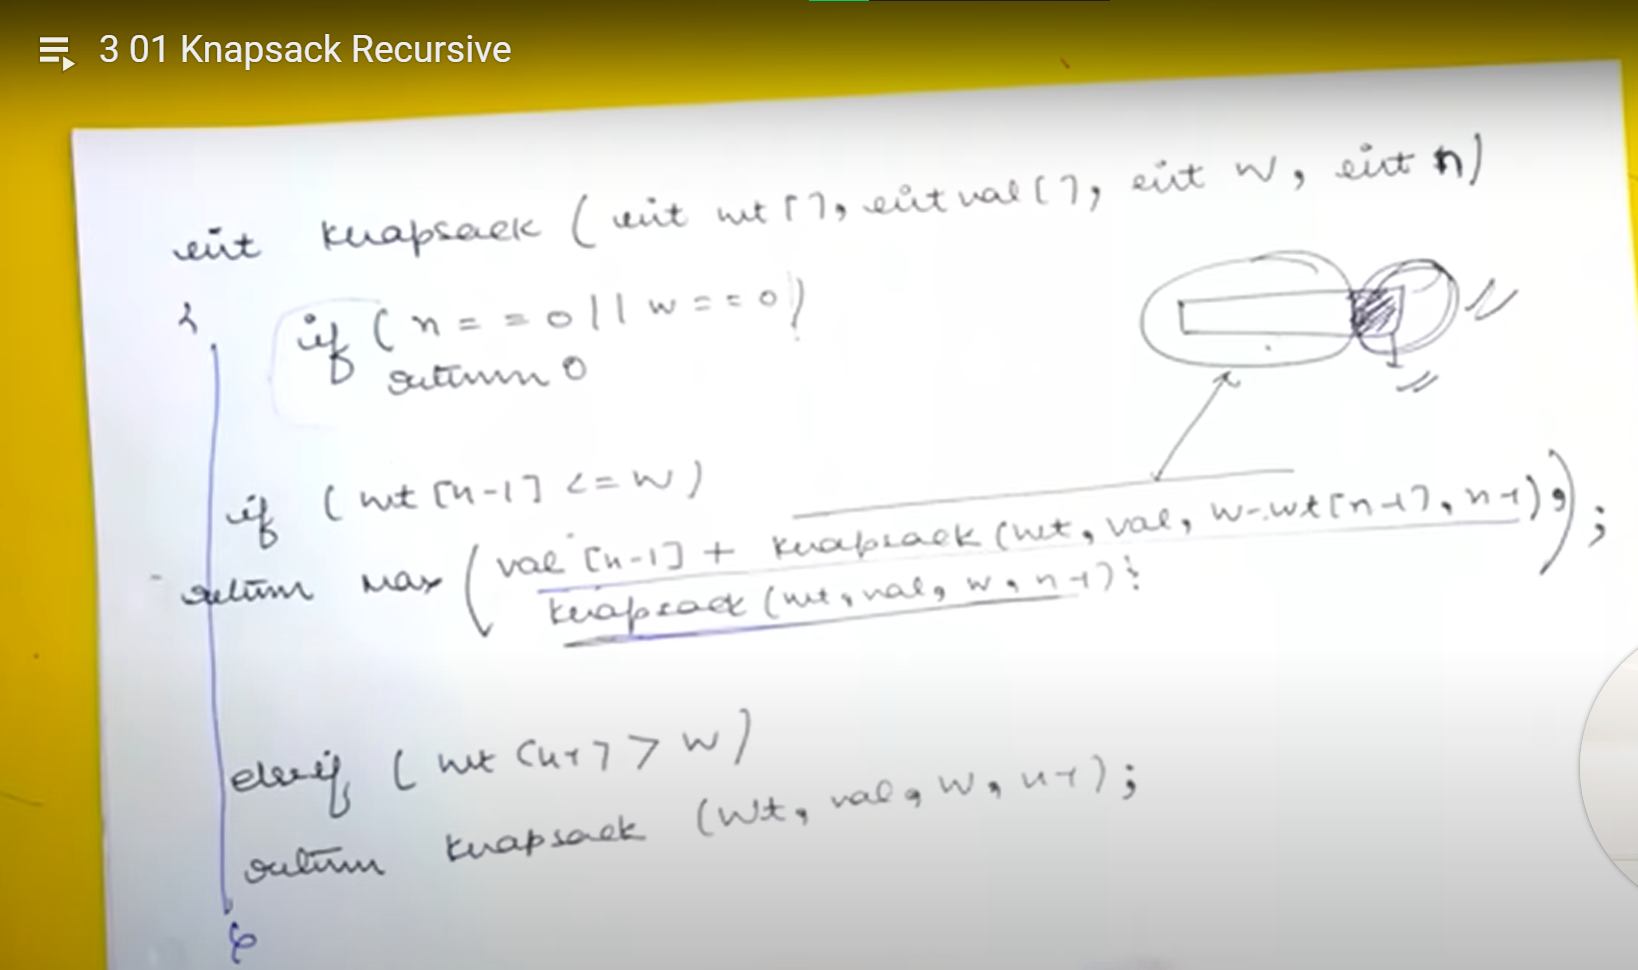 3 01 Knapsack Recursive
int knapsack (int wt[], int val[], int W, int n)
{
if (n == 0 || w == 0)
return 0
if (wt[n-1] <= W)
return max (val[n-1] + knapsack (wt, val, W-wt[n-1], n-1),
knapsack (wt, val, w, n-1);
);
elseif (wt[n-1] > W)
return knapsack (wt, val, W, n-1);
}